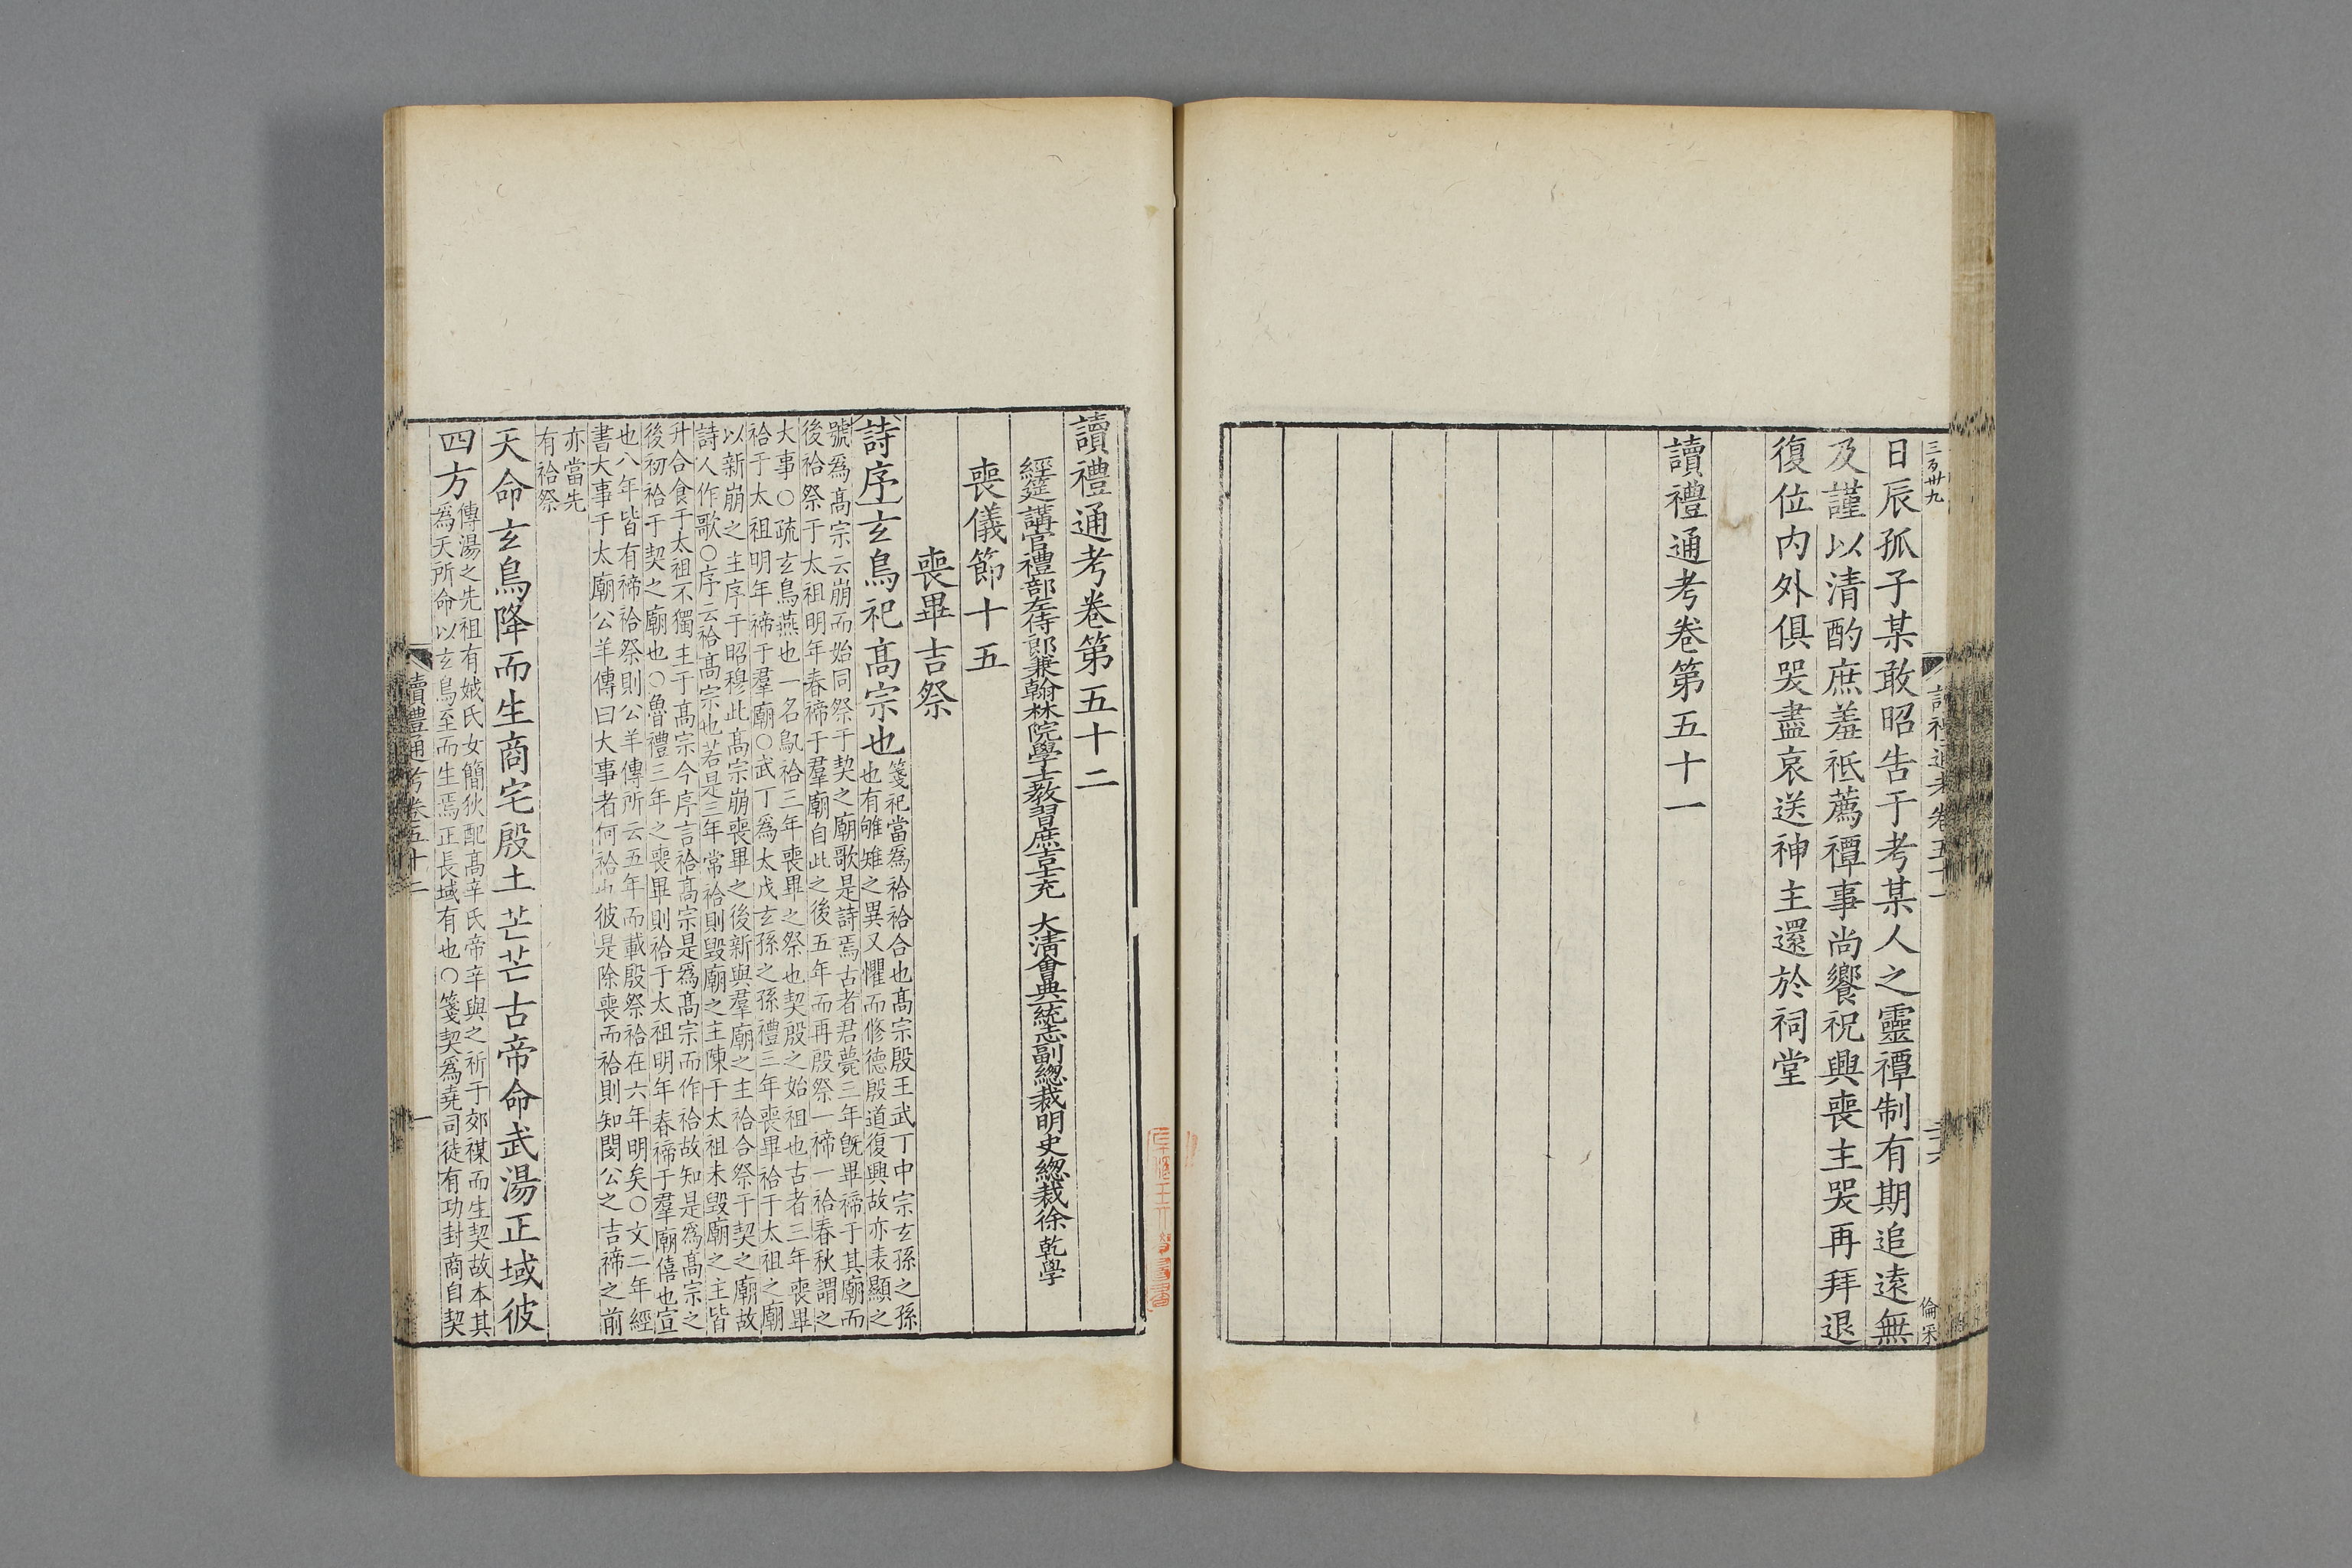 三百卅九
日辰孤子某敢昭告于考某人之靈禫制有期追遠無
及謹以清酌庶羞祗薦禫事尚饗祝興喪主哭再拜退
復位內外俱哭盡哀送神主還於祠堂
讀禮通考卷第五十一
讀禮通考卷第五十二
經筵講官禮部左侍郎兼翰林院學士教習庶吉士充 大清會典一統志副總裁明史總裁徐乾學
喪儀節十五
喪畢吉祭
詩序玄鳥祀高宗也
箋祀當爲祫祫合也高宗殷王武丁中宗玄孫之孫
也有雊雉之異又懼而修德殷道復興故亦表顯之
號爲高宗云崩而始同祭于契之廟歌是詩焉古者君薨三年既畢禘于其廟而
後祫祭于太祖明年春禘于羣廟自此之後五年而再殷祭一禘一祫春秋謂之
大事〇疏玄鳥燕也一名鳦祫三年喪畢之祭也契殷之始祖也古者三年喪畢
祫于太祖明年禘于羣廟〇武丁爲太戊玄孫之孫禮三年喪畢祫于太祖之廟
以新崩之主序于昭穆此高宗崩喪畢之後新與羣廟之主祫合祭于契之廟故
詩人作歌〇序云祫高宗也若是三年常祫則毀廟之主陳于太祖未毀廟之主皆
升合食于太祖不獨主于高宗今序言祫高宗是爲高宗而作祫故知是爲高宗之
後初祫于契之廟也〇魯禮三年之喪畢則祫于太祖明年春禘于羣廟僖也宣
也八年皆有禘祫祭則公羊傳所云五年而載殷祭祫在六年明矣〇文二年經
書大事于太廟公羊傳曰大事者何祫也彼是除喪而祫則知閔公之吉禘之前
亦當先
有祫祭
天命玄鳥降而生商宅殷土芒芒古帝命武湯正域彼
四方
傳湯之先祖有娀氏女簡狄配高辛氏帝辛與之祈于郊禖而生契故本其
爲天所命以玄鳥至而生焉正長域有也〇箋契爲堯司徒有功封商自契
讀禮通考卷五十二
一